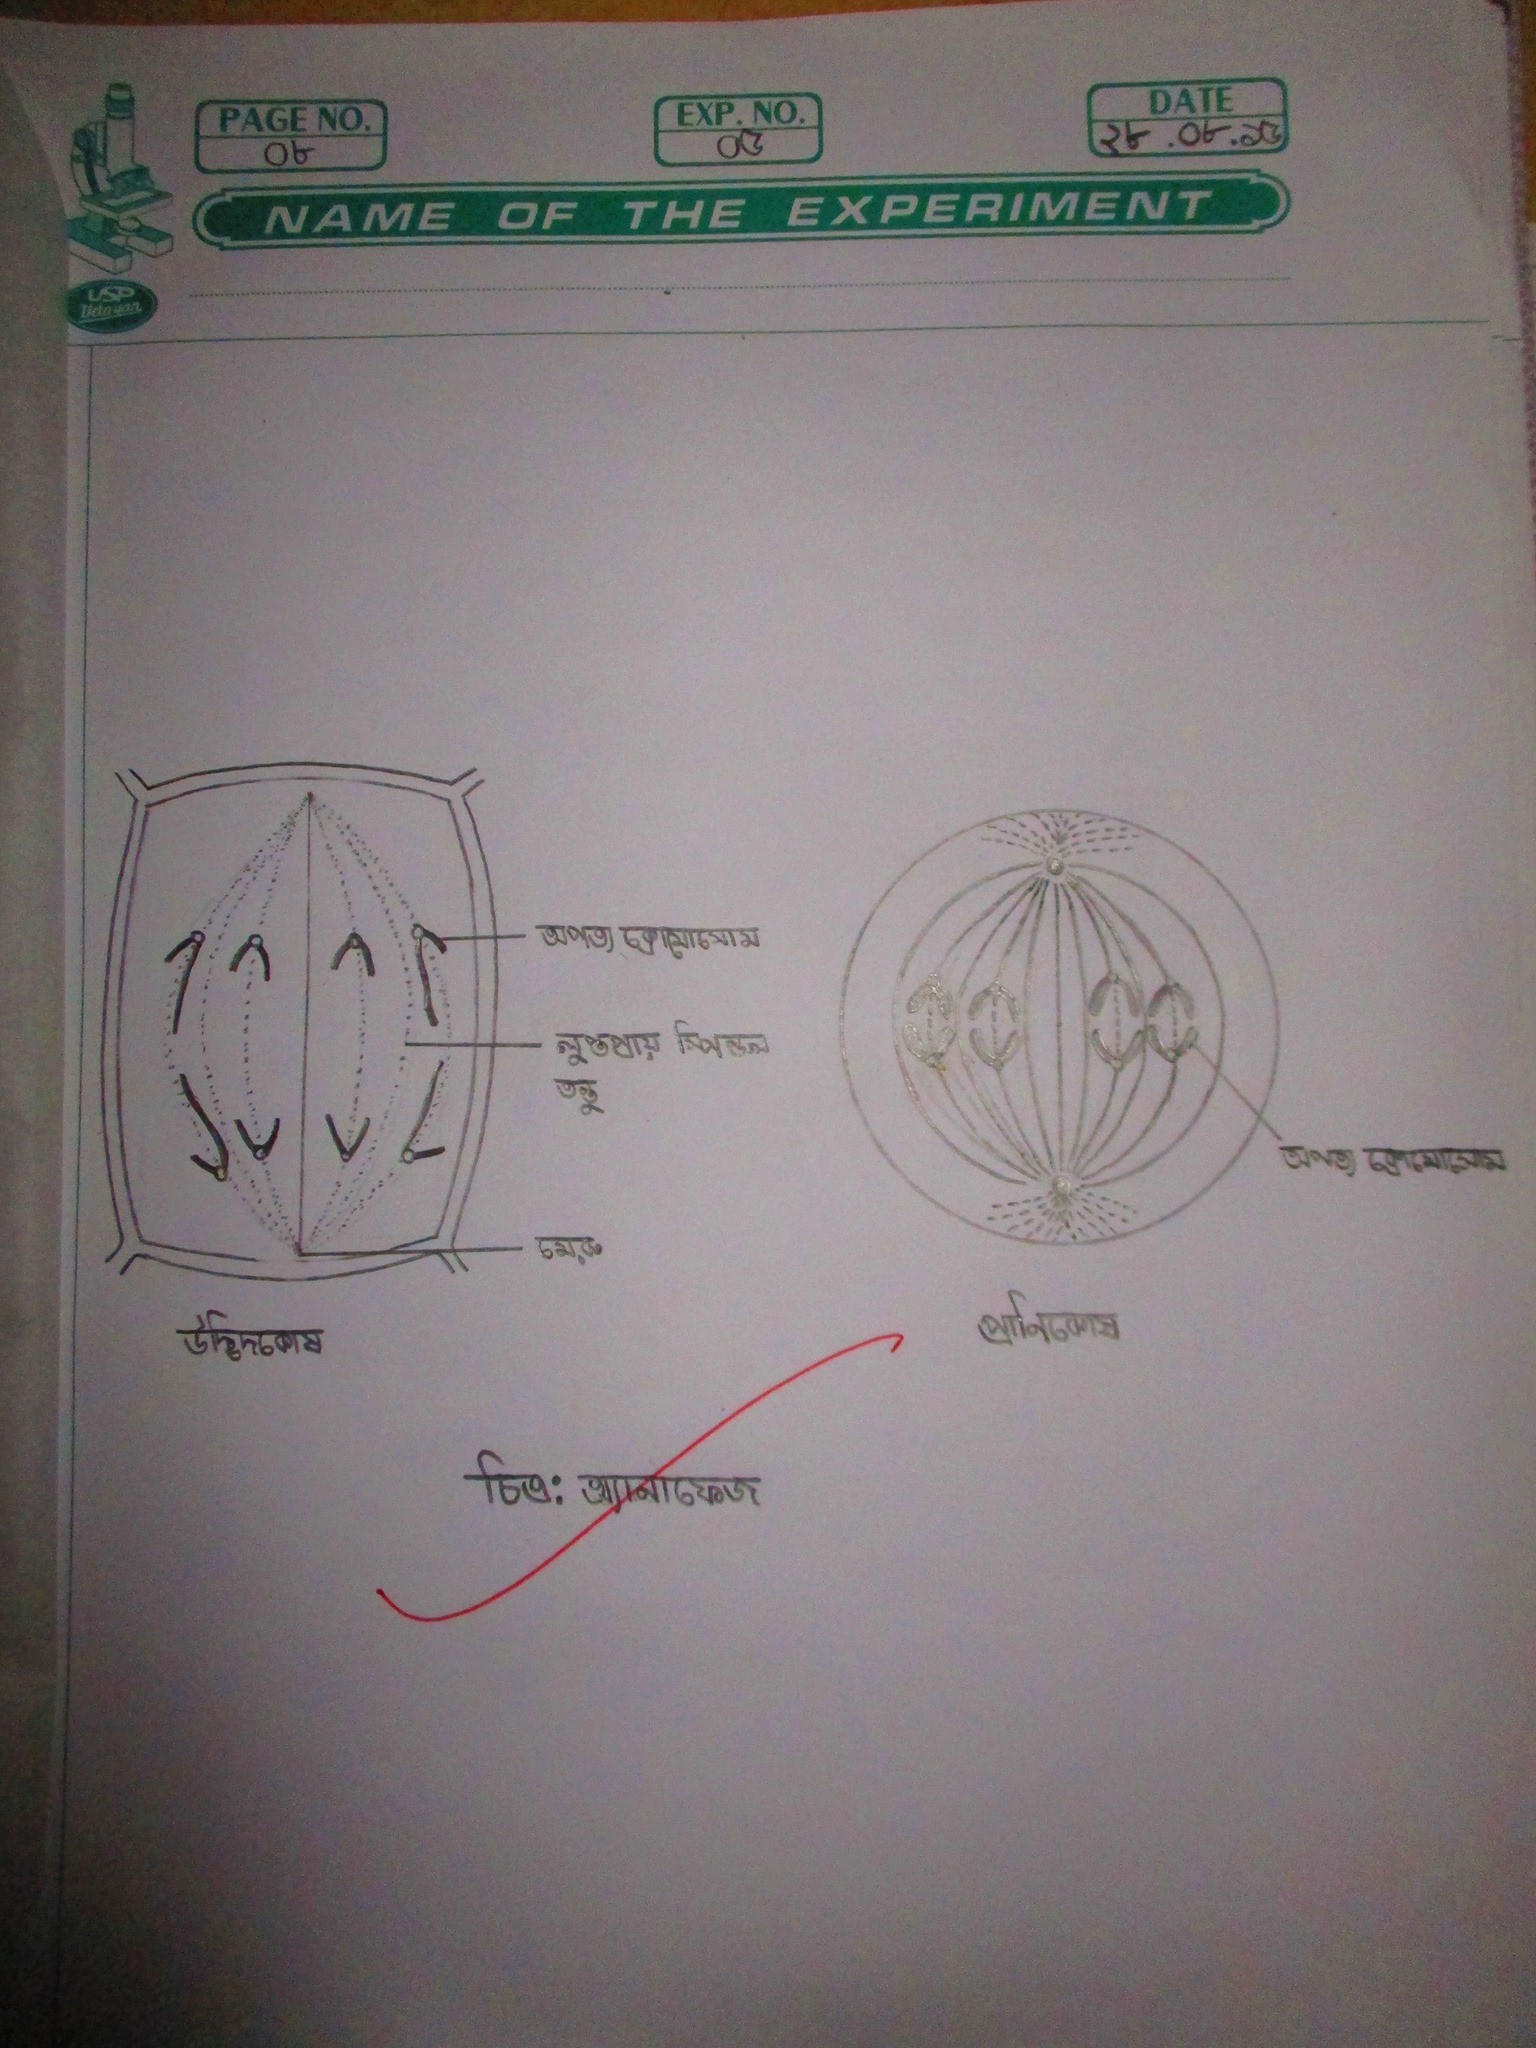 PAGE NO.
০৮
EXP. NO.
০৫
DATE
২৮.০৮.২৫
NAME OF THE EXPERIMENT
USP
অপত্য ক্রোমোসোম
লুপ্তপ্রায় স্পিন্ডল
তন্তু
অপত্য ক্রোমোসোম
মেরু
উদ্ভিদকোষ
প্রানিকোষ
চিত্র: অ্যানাফেজ